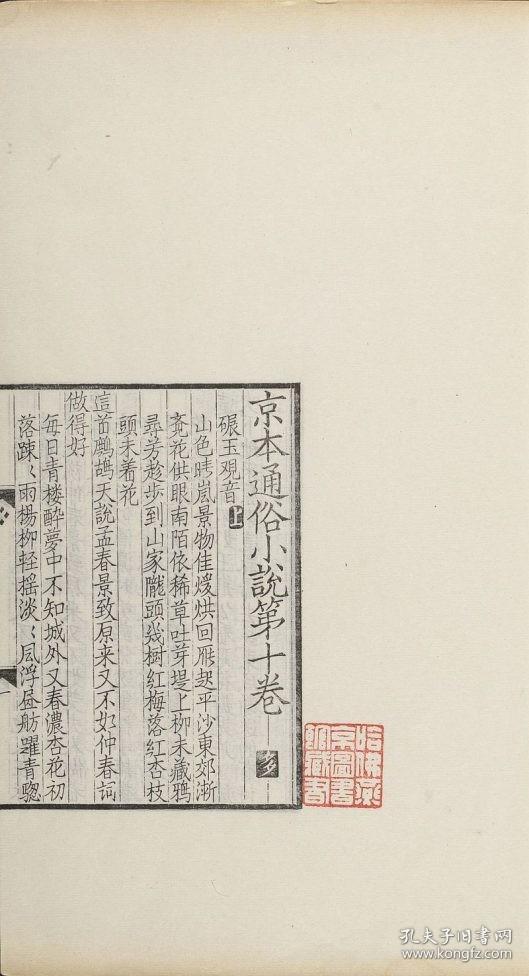 京本通俗小說第十卷
碾玉观音上
山色晴嵐景物佳煖烘回雁起平沙東郊漸
竟花供眼南陌依稀草吐芽堤上柳未藏鴉
尋芳趁步到山家隴頭幾樹紅梅落紅杏枝
頭未著花
這首鷓鴣天說孟春景致原来又不如仲春詞
做得好
每日青楼醉夢中不知城外又春濃杏花初
落踈〻雨楊柳輕摇淡〻風浮畫舫躍青驄
哈佛燕
京圖書
館藏書
孔夫子旧书网
www.kongfz.com